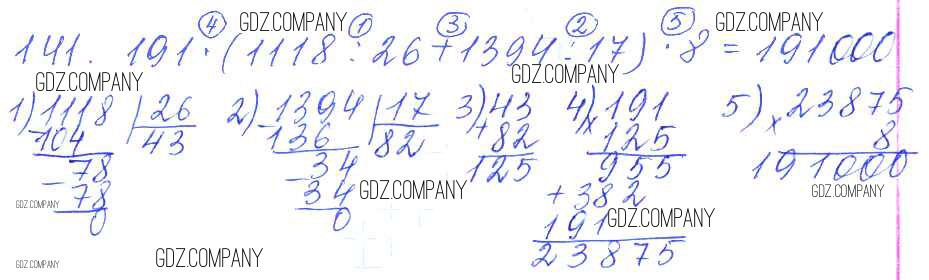 ④ GDZ.COMPANY ① ③ ② ⑤ GDZ.COMPANY
141. 191 · (1118 : 26 + 1394 : 17) · 8 = 191000
GDZ.COMPANY GDZ.COMPANY
1) 1118 | 26 2) 1394 | 17 3) 43 4) 191 5) 23875
104 43 136 82 + 82 × 125 × 8
- 78 - 34 125 955 191000
78 34 GDZ.COMPANY + 382 GDZ.COMPANY
GDZ.COMPANY 0 0 191 GDZ.COMPANY
GDZ.COMPANY GDZ.COMPANY 23875